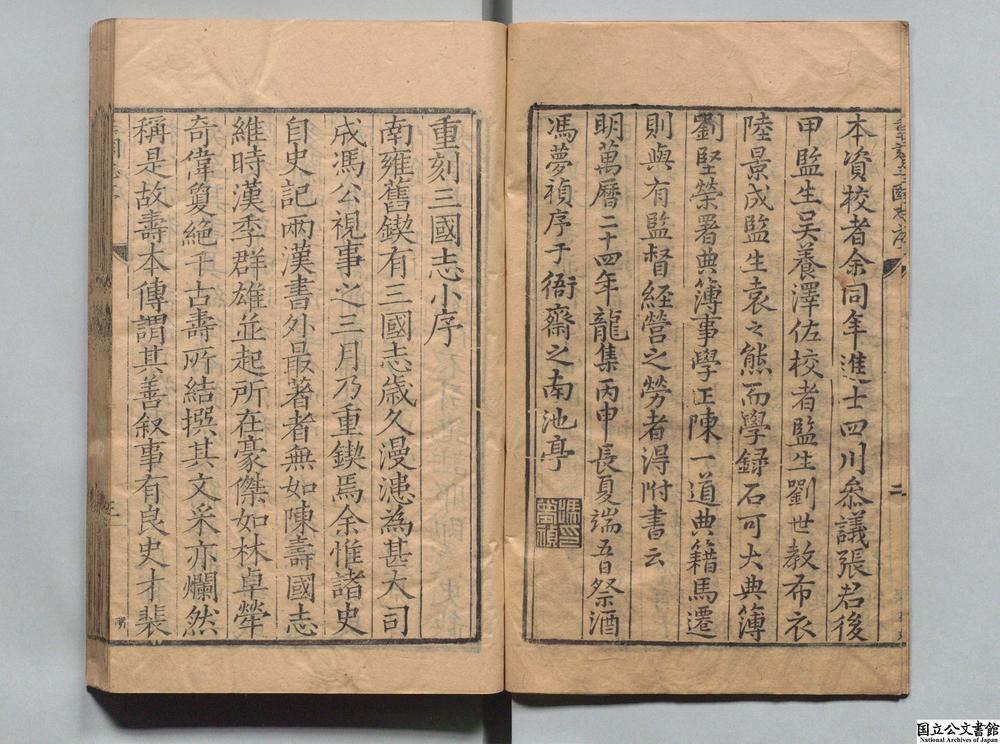 本資校者余同年進士四川叅議張君後
甲監生吴養澤佐校者監生劉世教布衣
陸景成監生袁之熊而學録石可大典簿
劉堅榮署典簿事學正陳一道典籍馬遷
則與有監督經營之勞者得附書云
明萬暦二十四年龍集丙申長夏端五日祭酒
馮夢禎序于衙齋之南池亭
馮夢禎印
二
重刻三國志小序
南雍舊鍥有三國志歳久漫漶為甚大司
成馮公視事之三月乃重鍥焉余惟諸史
自史記兩漢書外最著者無如陳壽國志
維時漢季群雄並起所在豪傑如林卓犖
奇偉敻絶千古壽所結撰其文采亦爛然
稱是故壽本傳謂其善叙事有良史才裴
国立公文書館
National Archives of Japan